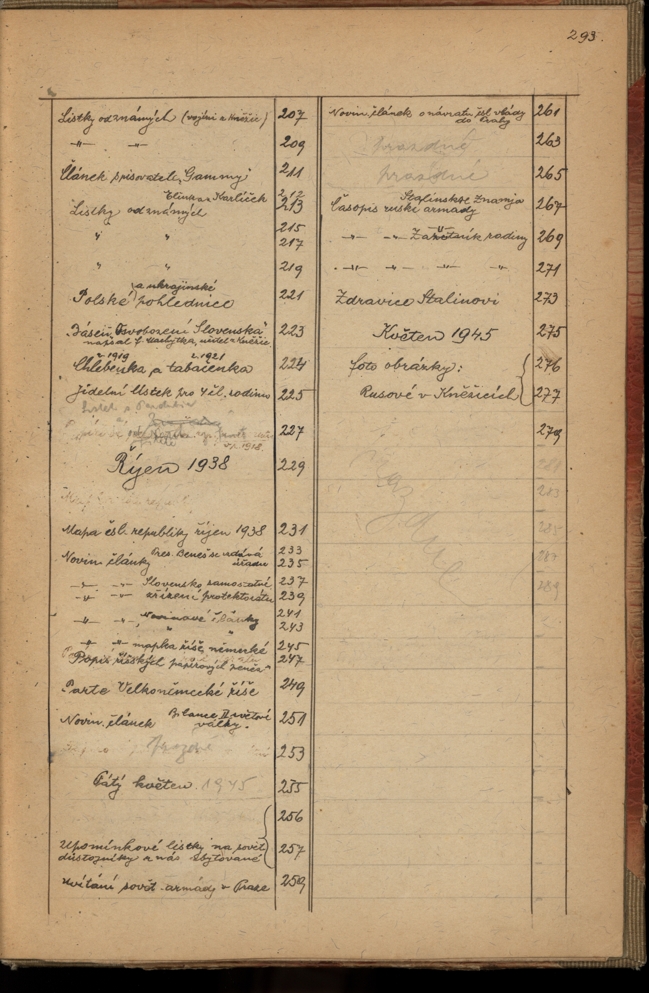 293.
Lístky od známých (vojíni z Kněžic) 207
-"- -"- 209
Článek spisovatele „Gammy" 211
212
Lístky od známých 213
215
" " 217
" " 219
a ukrajinské
Polské pohlednice 221
Báseň „Osvobození Slovenska" 223
z. 1919 z. 1921
Chlebenka a tabačenka 224
Jídelní lístek pro 4 čl. rodinu 225
227
Říjen 1938 229
Mapa čsl. republiky říjen 1938 231
Pres. Beneš se vzdává 233
Novin. články úřadu 235
-"- -"- Slovensko samostatné 237
-"- -"- zřízení protektorátu 239
241
-"- -"- Novinové články 243
-"- -"- mapka říše německé 245
Popis říšských papírových peněz 247
Parte Velkoněmecké říše 249
Novin. článek Bilance II světové války. 251
prázdné 253
Pátý květen 1945 255
256
Upomínkové lístky na sovět. 257
důstojníky u nás ubytované
uvítání sovět. armády v Praze 259
Novin. článek o návratu čsl. vlády 261
do Prahy
prazdné 263
prazdné 265
Stalinskoe Znamja
Časopis ruské armády 267
-"- -"- Začátník rodiny 269
-"- -"- -"- -"- 271
Zdravice Stalinovi 273
Květen 1945 275
foto obrázky: 276
Rusové v Kněžicích 277
279
281
283
prazdné
285
287
289